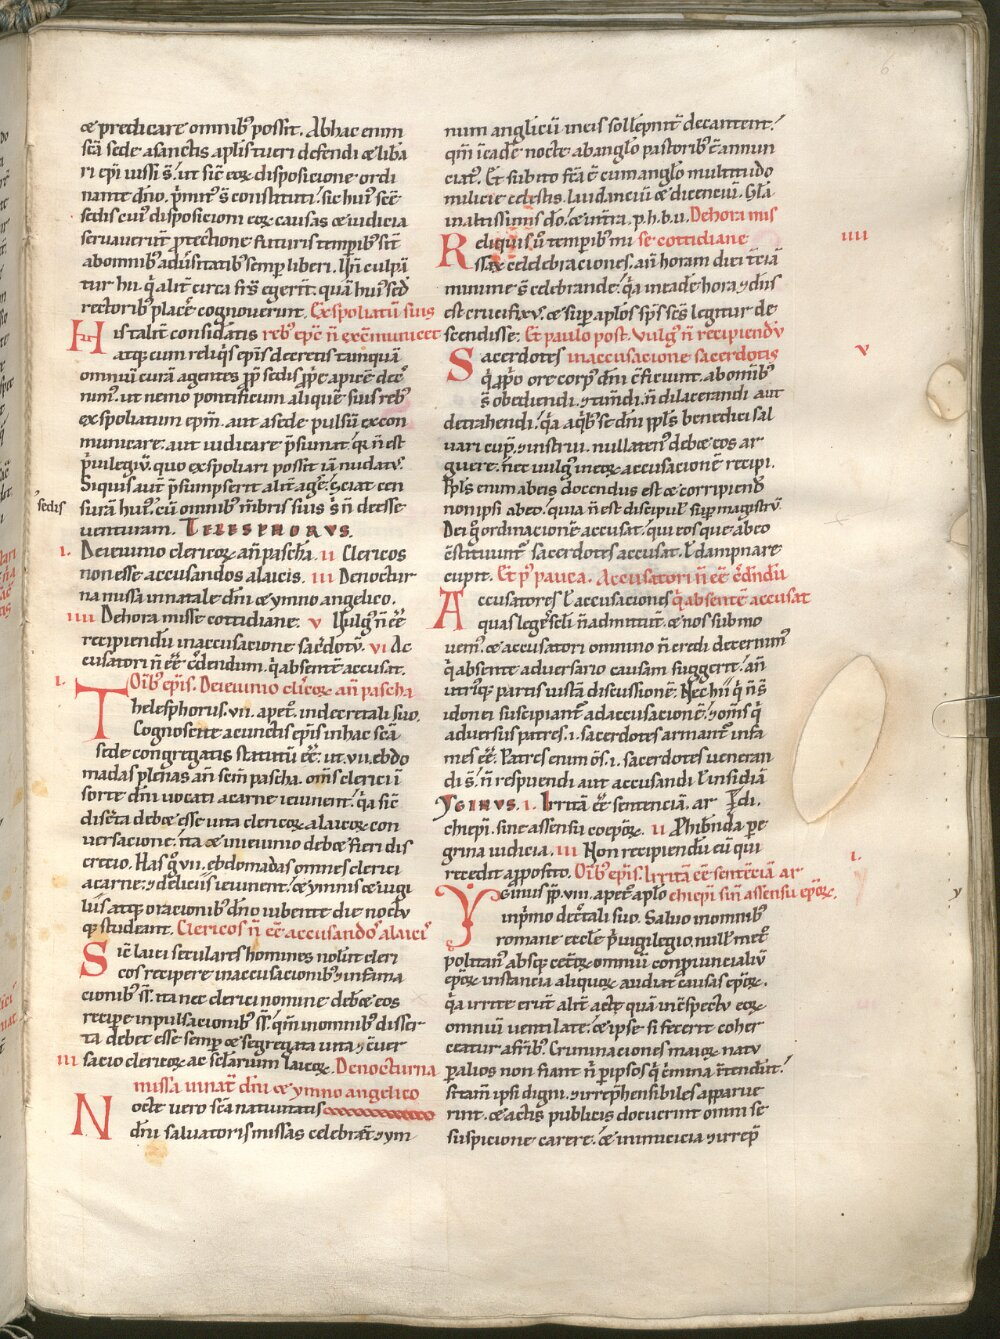 œ predicare omnib; possit. Ab hac enim
scā sede a sanctis aplis tueri defendi & libe
ri epi iussi s̄. ut sic̄ eoꝝ disposicione ordi
nante dn̄o, p̄mit; s̄ constituti. sic hui; scē
sedis cui; disposicioni eoꝝ causas & iudicia
servaverūt p̄tectione futuris temporib; sīt
ab omnib; adv̄sitatib; semp liberi.
rectorib; placē cognoverunt. Exspoliatū suis
His talit̄ considatis reb; epc̄ n̄ excōmunicet
atq; cum reliq̄s ep̄is decretis tanquā
omniū curā agentes pp̄ sedis pp̄e apicē dec̄
num. ut nemo pontificum aliquē suis reb;
exspoliatum epm̄. aut a sede pulsū excom
municare. aut iudicare p̄sumat. q̄r n̄ est
p̄vilegiū. quo exspoliari possit iā nudat;.
Si quis aut̄ p̄sumpserit alit̄ agē. sciat cen
sedis
surā hui;. cū omnib; mēbris suis s̄ n̄ deesse
venturam. TELESPHORUS.
I. De ieiunio clericoꝝ an̄ pascha. II Clericos
non esse accusandos a laicis. III De noctur
na missa in natale dn̄i & ymno angelico.
IIII De hora misse cottidiane. V Vulg; n̄ eē
recipiendū in accusacione sac̄dotū. VI Ac
cusatori n̄ eē c̄dendum. q̄ absentē accusat.
I. Oīb; ep̄is. De ieiunio cl̄icoꝝ an̄ pascha
Thelesphorus. vii. a pet̄. in decretali suo.
Cognoscite a cunctis ep̄is in hac scā
sede congregatis statutū eē. ut. vii. ebdo
madas plenas an̄ scm̄ pascha. om̄s clerici ī
sorte dn̄i vocati a carne ieiunent. q̄a sic̄
discreta debet esse vita clericoꝝ a laicoꝝ con
versacione. ita & in ieiunio debet fieri dis
crecio. Has g̊ vii. ebdomadas omnes clerici
a carne ⁊ deliciis ieiunent. & ymnis & vigi
liis atq; oracionib; dn̄o iubente die noctu
q; studeant. Clericos n̄ eē accusandos a laicis
Sic̄ laici seculares homines nolūt cleri
cos recipere in accusacionib; ⁊ infama
cionib; sūis. ita nec clerici nomine debent eos
recipe in pulsacionib; sūis. qm̄ in omnib; discre
ta debet esse semp & segregata vita ⁊ cōver
III sacio clericoꝝ ac sclarium laicoꝝ. De nocturna
missa in nat̄ dn̄i & ymno angelico
Nocte vero scā nativitatis
dn̄i salvatoris missas celebrēt ⁊ ym
num anglicū in eis sollēpnit̄ decantent.
qm̄ ī eadē nocte ab anglo pastorib; ē annun
ciat;. Et subito fc̄a ē cum anglo multitudo
milicie celestis. laudanciū & dicenciū. Gl̄a
in altissimis do. & in tīra. p. h. b. v. De hora mis
Reliquis ū temporib; mi se cottidiane IIII
ssaꝝ celebraciones. an̄ horam diei t̄ciā
minime s̄ celebrande. q̄a in eadē hora ⁊ dn̄s
est crucifixus. & sup aplos sp̄s scs̄ legitur de
scendisse. Et paulo post. Vulg; n̄ recipiendū
Sacerdotes in accusacione sacerdotis V
q̄ p̄prio ore corp; dn̄i c̄ficiunt. ab omnib;
s̄ obediendi. ⁊ tim̄di. n̄ dilacerandi aut
detrahendi. q̄a a q̄b; se dn̄i ppl̄s benedici sal
vari cupit ⁊ instrui. nullaten; debet eos ar
guere. nec vulg; in eoꝝ accusacionē recipi.
Ppl̄s enim ab eis docendus est & corripiend;
non ipsi ab eo. quia n̄ est discipul; sup magistrū.
Dei g̊ ordinacionē accusat. qui eos que ab eo
c̄stituunt̄ sacerdotes accusat. ł dampnare
cupit. Et p; pauca. Accusatori n̄ eē c̄dendū
Accusatores ł accusaciones q̄ absentē accusat
quas leges sc̄li n̄ admittūt. & nos submo
vem;. & accusatori omnino n̄ credi decernim;
q̄ absente adversario causam suggerit. an̄
utriusq; partis iustā discussionē. Nec hii q̄ n̄ s̄
idonei suscipiant̄ ad accusacionē. ⁊ om̄s q̄
adversus patres. i. sacerdotes armant̄ infa
mes eē. Patres enim om̄s. i. sacerdotes veneran
di s̄. n̄ respuendi aut accusandi ł insidiā
YGINUS. I. Irritā eē sentenciā. ar di.
chiep̄i. sine assensu coepōꝝ. II Phibenda pe
grina iudicia. III Non recipiendū eū qui
recedit a pposito. Oīb; ep̄is. Irritā eē sentēciā ar I.
Yginus pp. viii. a pet̄ aplo chiep̄i sin̄ assensu epoꝝ.
in p̄mo decr̄tali suo. Salvo in omnib;
romane ecclē p̄vigilegio. null; met̄
politan; absq; cetoꝝ omniū conprovincialiū
epoꝝ instancia aliquoꝝ audiat causas epoꝝ.
q̄a irrite erūt alit̄ acte quā in c̄spectu eoꝝ
omniū ventilate. & ipse si fecerit coher
ceatur a frib;. Criminaciones maioꝝ natu
p alios non fiant n̄ p ipsos q̄ c̄mina intendūt.
si tam̄ ipsi digni. ⁊ irrep̄hensibiles apparue
rint. & actis publicis docuerint omni se
suspicione carere. & inimicicia ⁊ irrep̄